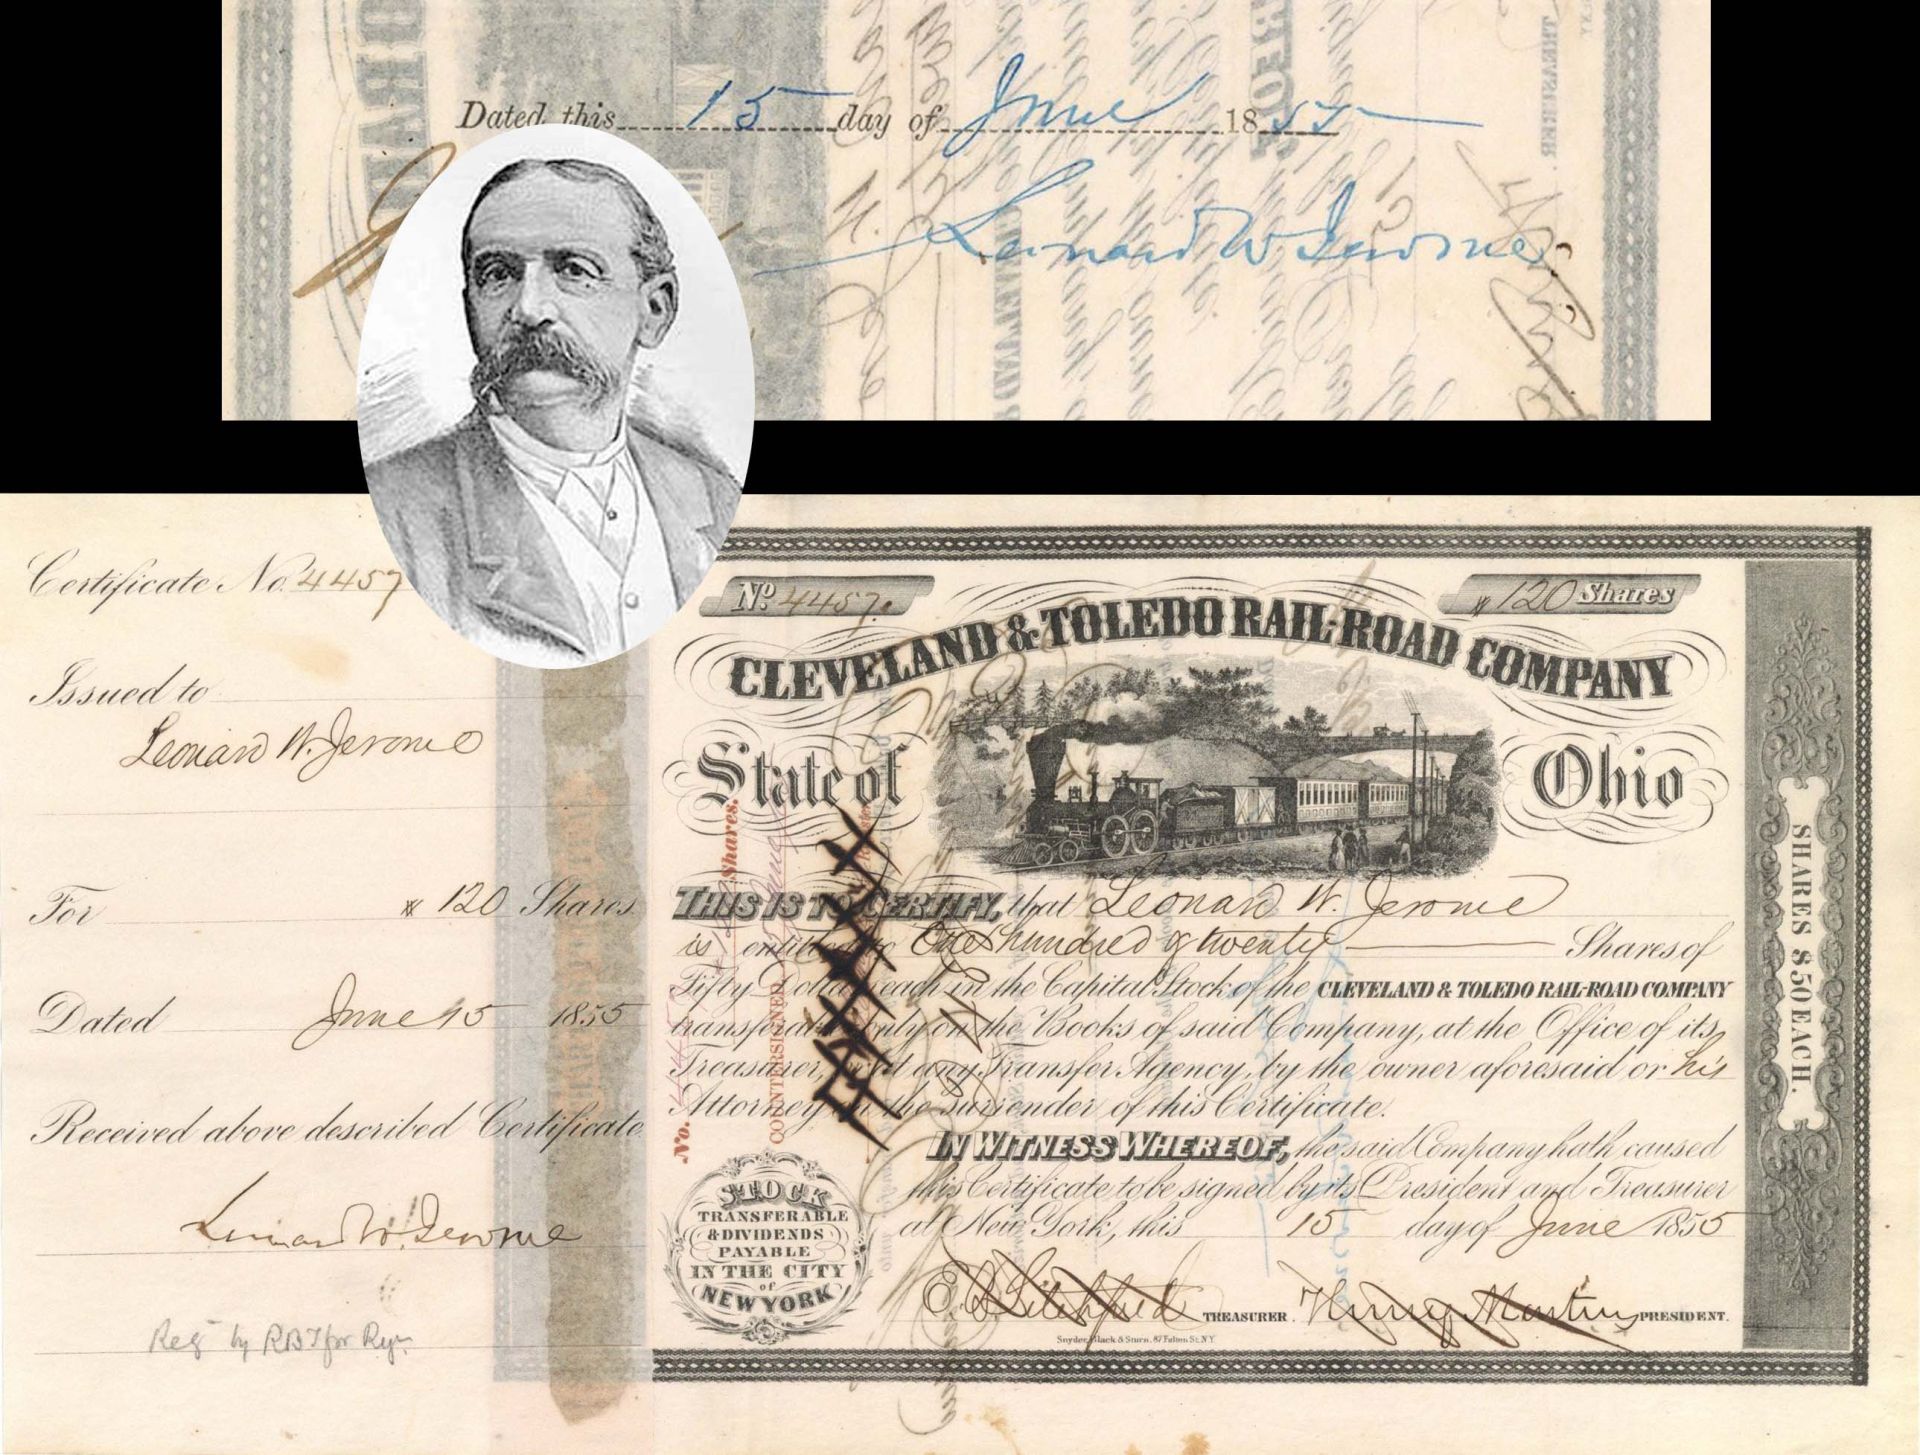 Dated this 15 day of June 1855
Leonard W Jerome
TREASURER.
Certificate No. 4457
Issued to
Leonard W. Jerome
For 120 Shares
Dated June 15 1855
Received above described Certificate
Leonard W. Jerome
Reg by RBT for
No. 4457.
120 Shares
CLEVELAND & TOLEDO RAIL-ROAD COMPANY
State of Ohio
THIS IS TO CERTIFY, that Leonard W. Jerome
is entitled to One hundred & twenty Shares of
Fifty Dollars each in the Capital Stock of the CLEVELAND & TOLEDO RAIL-ROAD COMPANY
transferable only on the Books of said Company, at the Office of its
Treasurer, or at any Transfer Agency, by the owner aforesaid or his
Attorney on the surrender of this Certificate.
IN WITNESS WHEREOF, the said Company hath caused
this Certificate to be signed by its President and Treasurer
at New York, this 15 day of June 1855
TREASURER. Henry Martin PRESIDENT.
Snyder, Black & Sturn, 87 Fulton St. N.Y.
STOCK
TRANSFERABLE
& DIVIDENDS
PAYABLE
IN THE CITY
of
NEW YORK
No. Shares.
COUNTERSIGNED
SHARES $50 EACH.